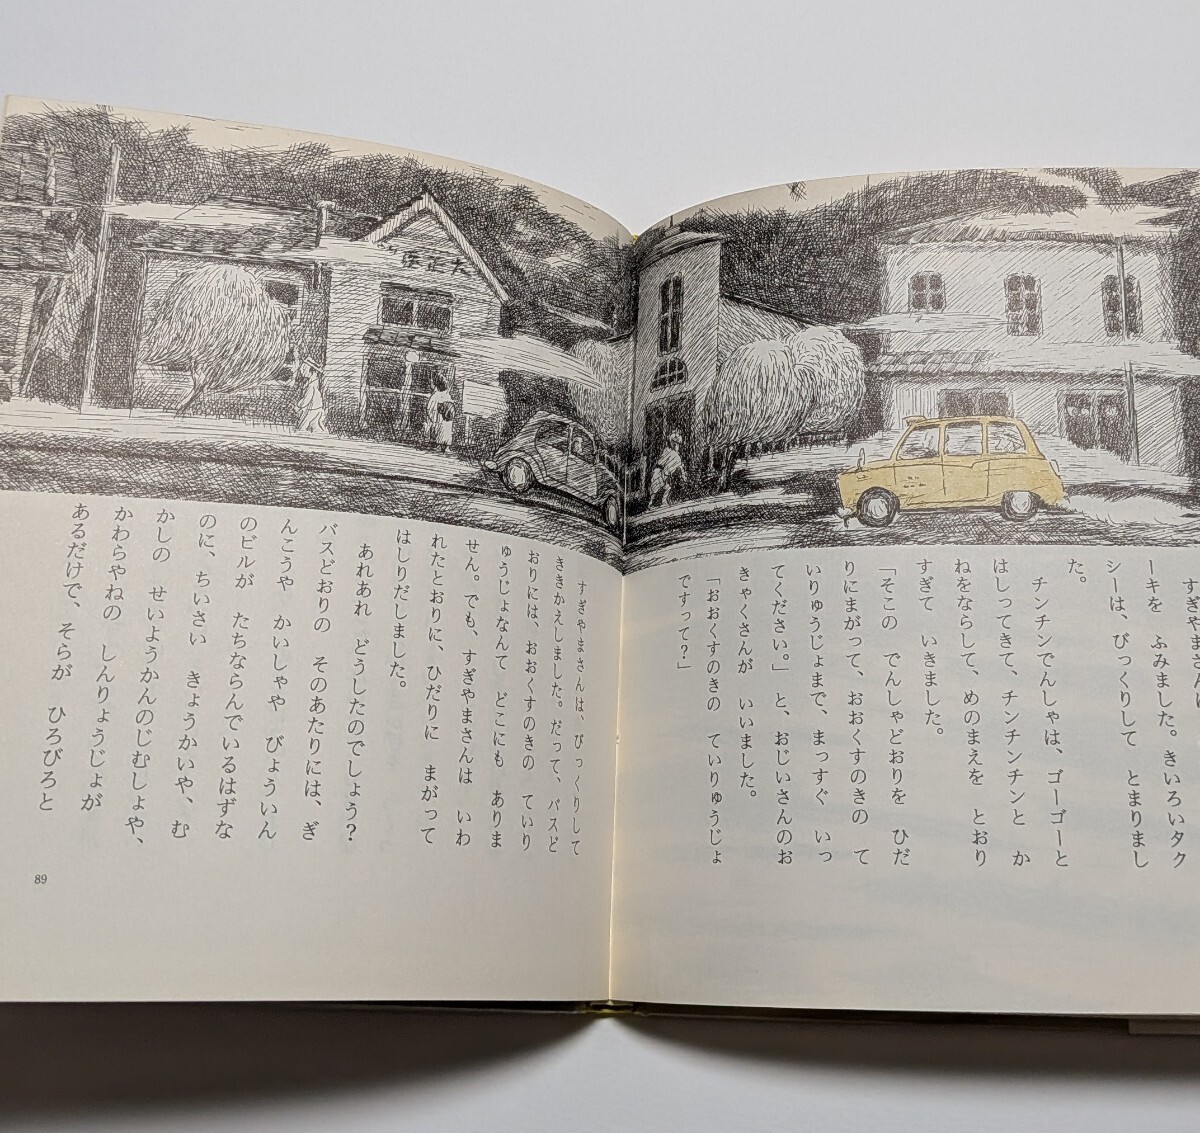 すぎやまさんは
ーキを　ふみました。きいろいタク
シーは、びっくりして　とまりまし
た。
チンチンでんしゃは、ゴーゴーと
はしってきて、チンチンチンと　か
ねをならして、めのまえを　とおり
すぎて　いきました。
「そこの　でんしゃどおりを　ひだ
りにまがって、おおくすのきの　て
いりゅうじょまで、まっすぐ　いっ
てください。」と、おじいさんのお
きゃくさんが　いいました。
「おおくすのきの　ていりゅうじょ
ですって？」
すぎやまさんは、びっくりして
ききかえしました。だって、バスど
おりには、おおくすのきの　ていり
ゅうじょなんて　どこにも　ありま
せん。でも、すぎやまさんは　いわ
れたとおりに、ひだりに　まがって
はしりだしました。
あれあれ　どうしたのでしょう？
バスどおりの　そのあたりには、ぎ
んこうや　かいしゃや　びょういん
のビルが　たちならんでいるはずな
のに、ちいさい　きょうかいや、む
かしの　せいようかんのじむしょや、
かわらやねの　しんりょうじょが
あるだけで、そらが　ひろびろと
89